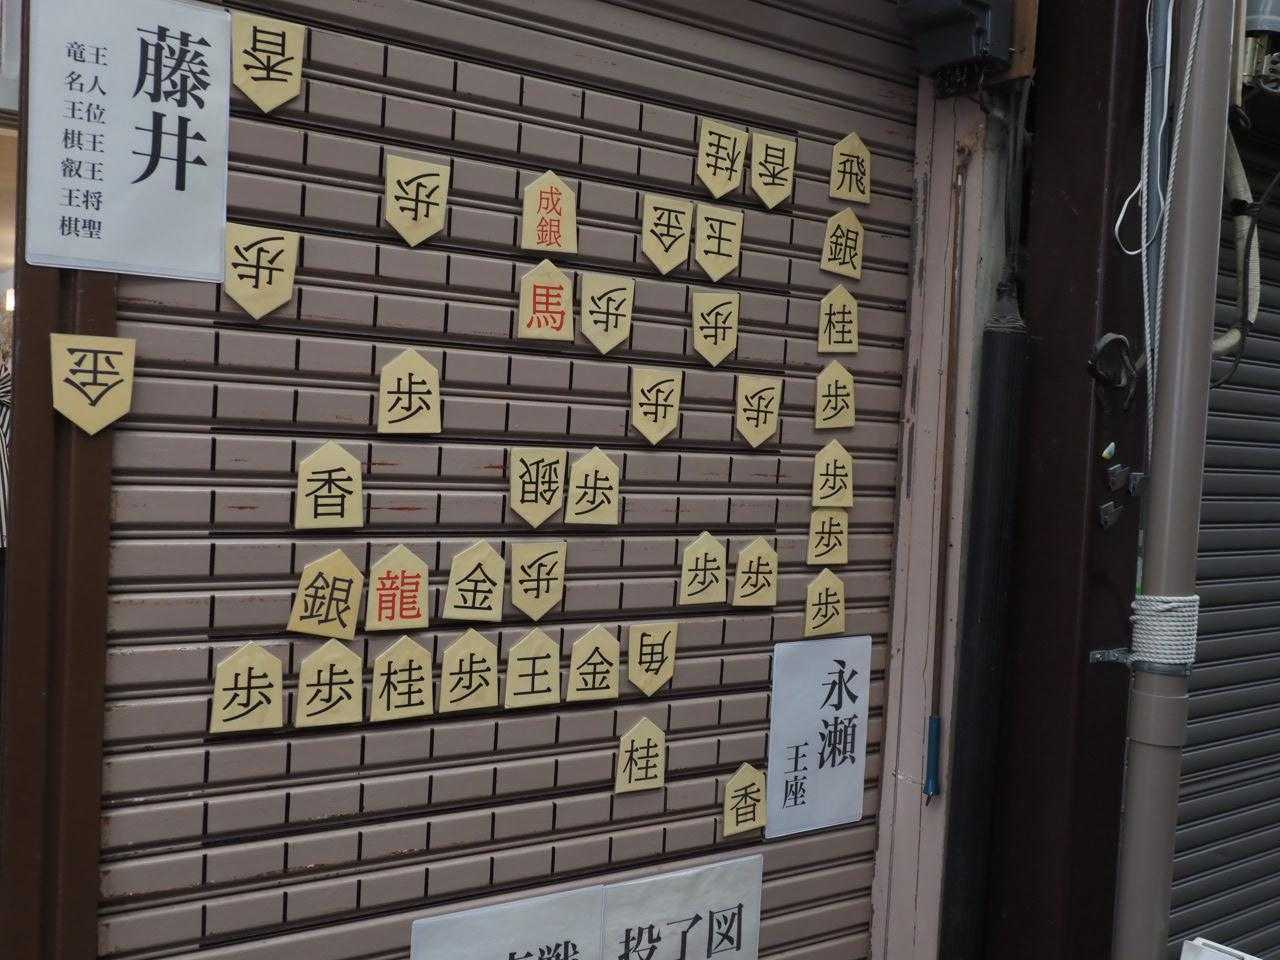 藤井
竜王
名人
王位
棋王
叡王
王将
棋聖
香
桂 香 飛
歩 成銀 金 玉 銀
歩 馬 歩 歩 桂
金 歩 歩 歩 歩
香 銀 歩 歩
歩
銀 龍 金 歩 歩 歩 歩
歩 歩 桂 歩 王 金 角
桂
香
永瀬
王座
投了図